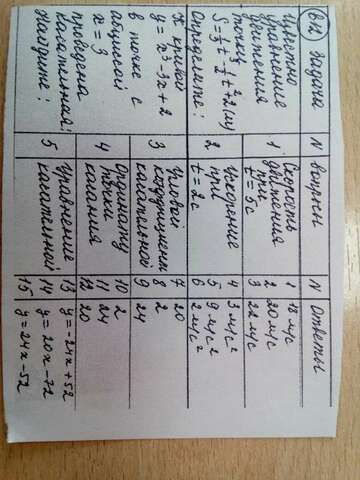 В12 Задача
Известно
уравнение
движения
точки
Определите:
К кривой
y = x³-3x+2
в точке с
абсциссой
x = 3
проведена
касательная:
Найдите:
N Вопросы
1 Скорость
движения
при
t=5c
2 Ускорение
при
t=2c
3 Угловой
коэффициент
касательной
4 Ординату
точки
касания
5 Уравнение
касательной
N Ответы
1 18 м/с
2 20 м/с
3 22 м/с
4 3 м/с²
5 9 м/с²
6 2 м/с²
7 20
8 2
9 24
10 2
11 24
12 20
13 y=-24x+52
14 y=20x-72
15 y=24x-52